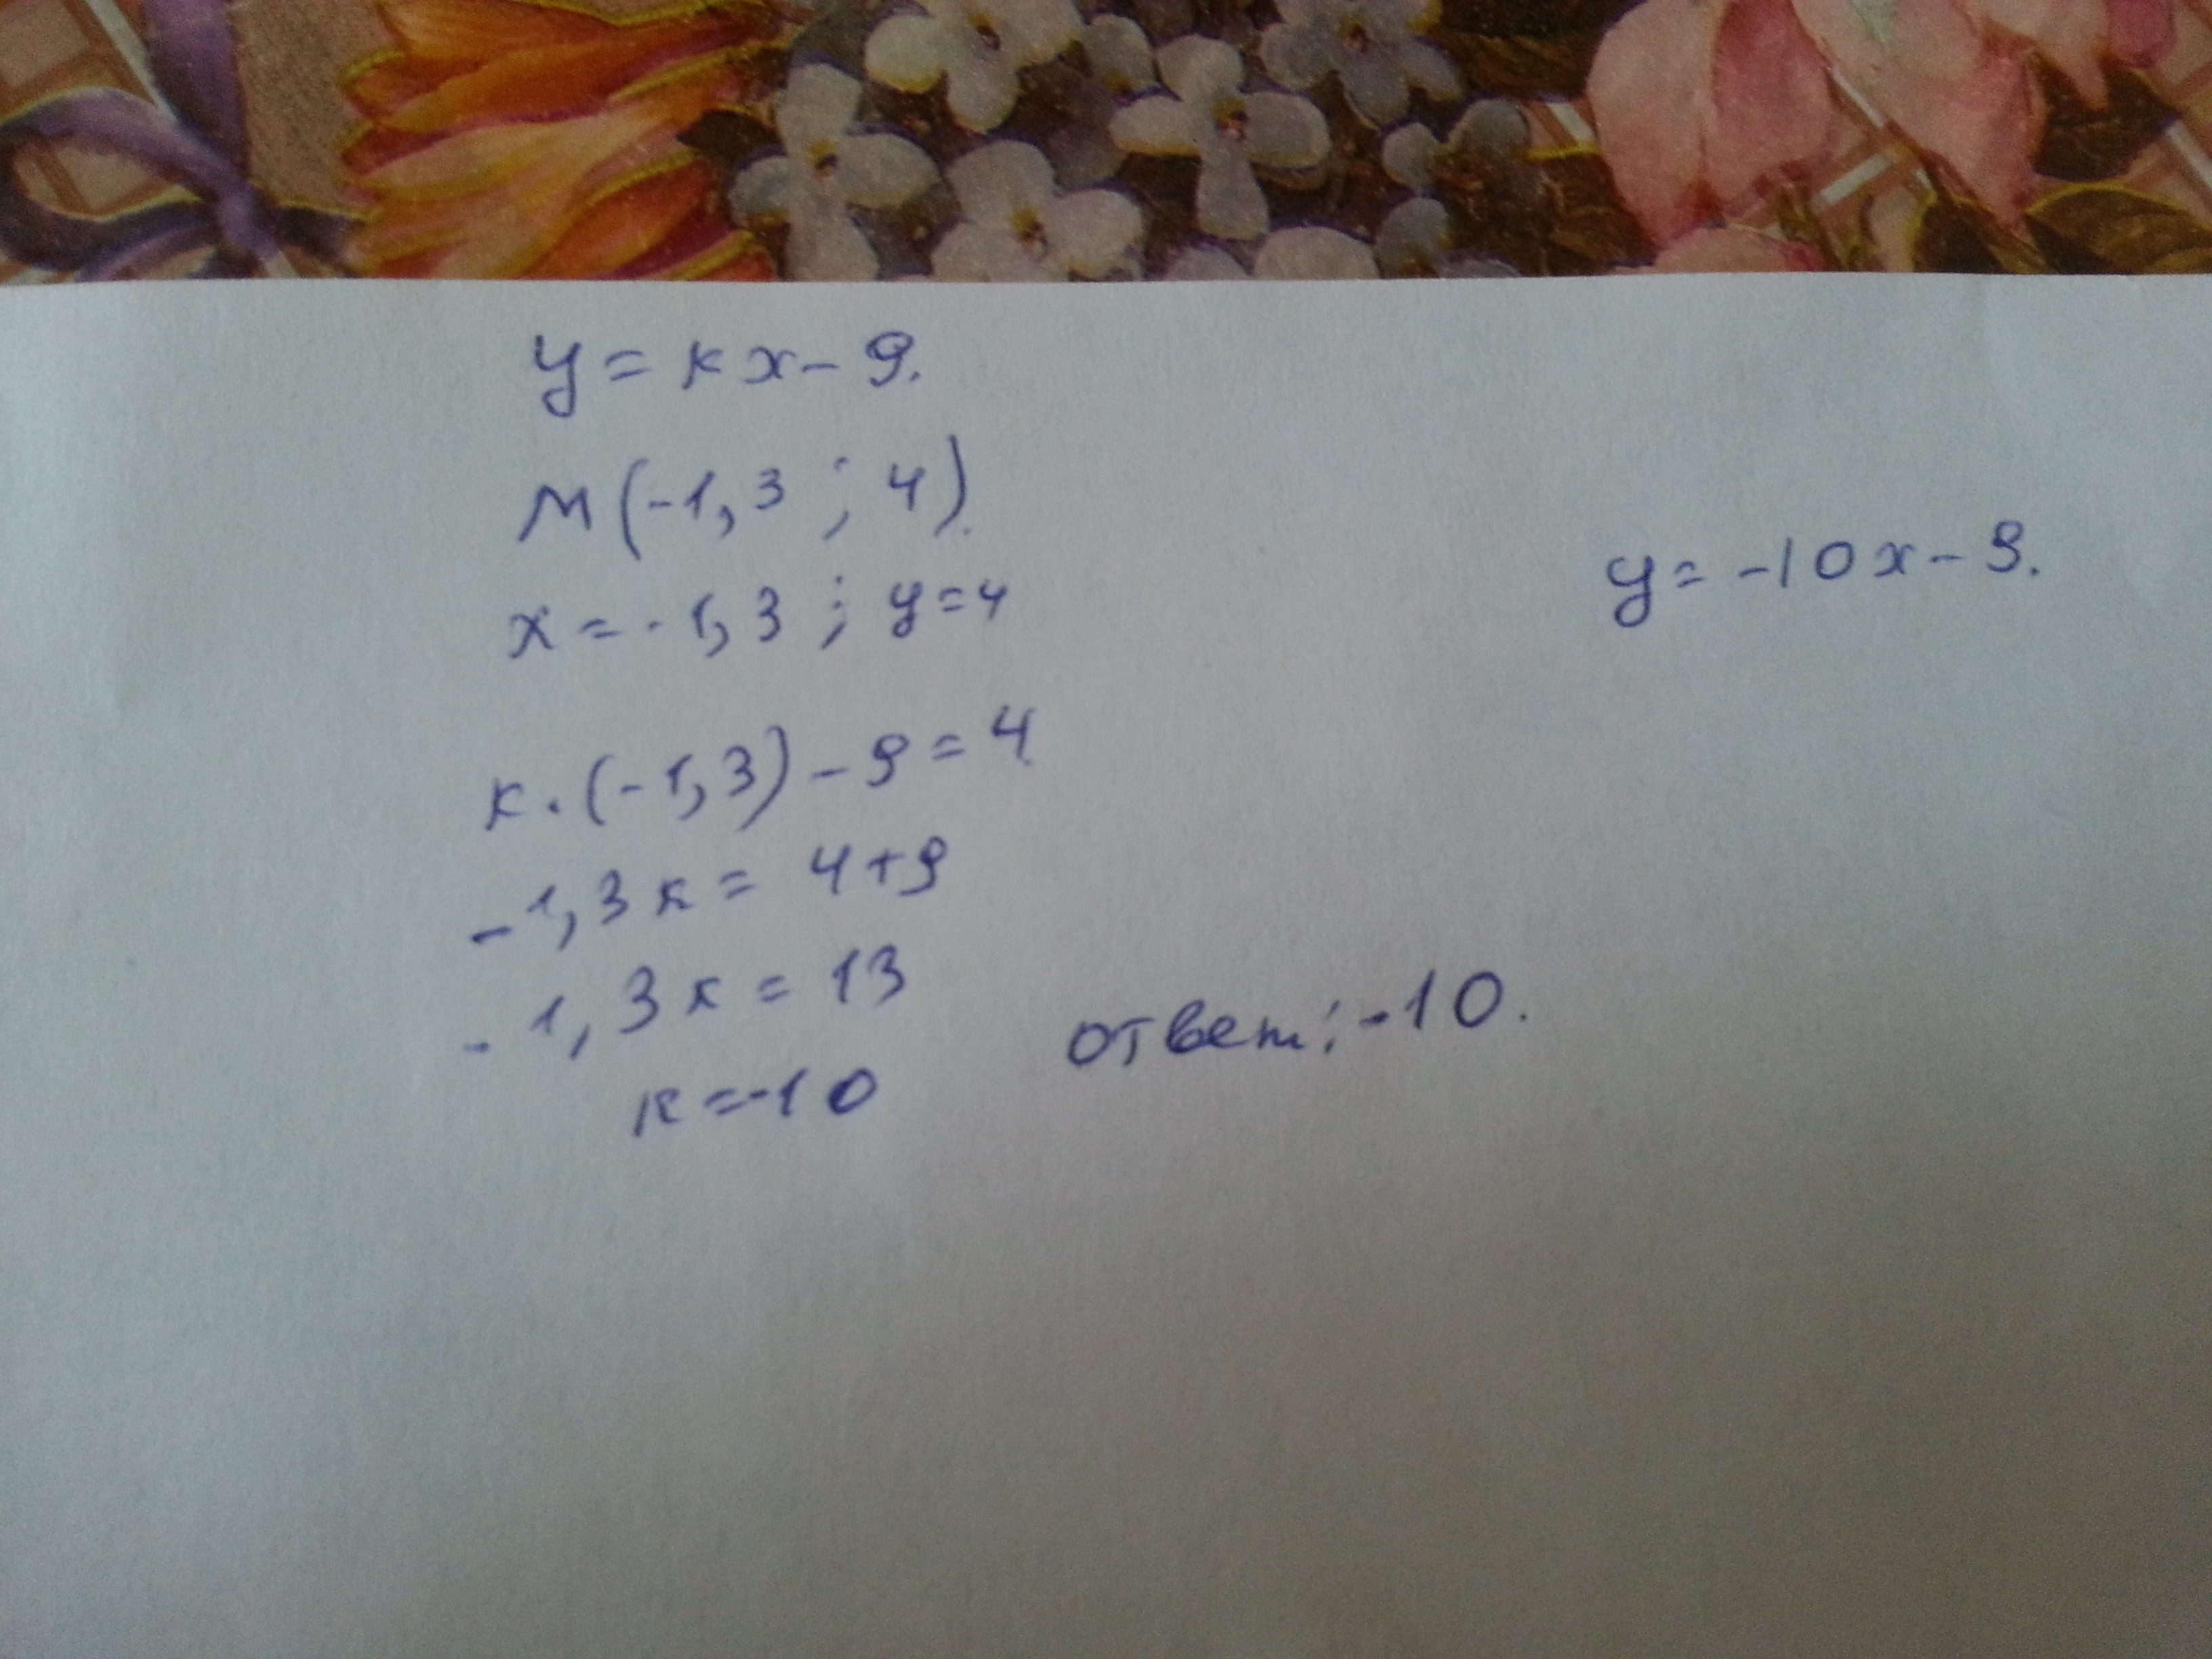 y = kx - 9.
M(-1,3 ; 4)
x = -1,3 ; y = 4
y = -10x - 9.
k · (-1,3) - 9 = 4
-1,3k = 4 + 9
-1,3k = 13
k = -10
ответ: -10.